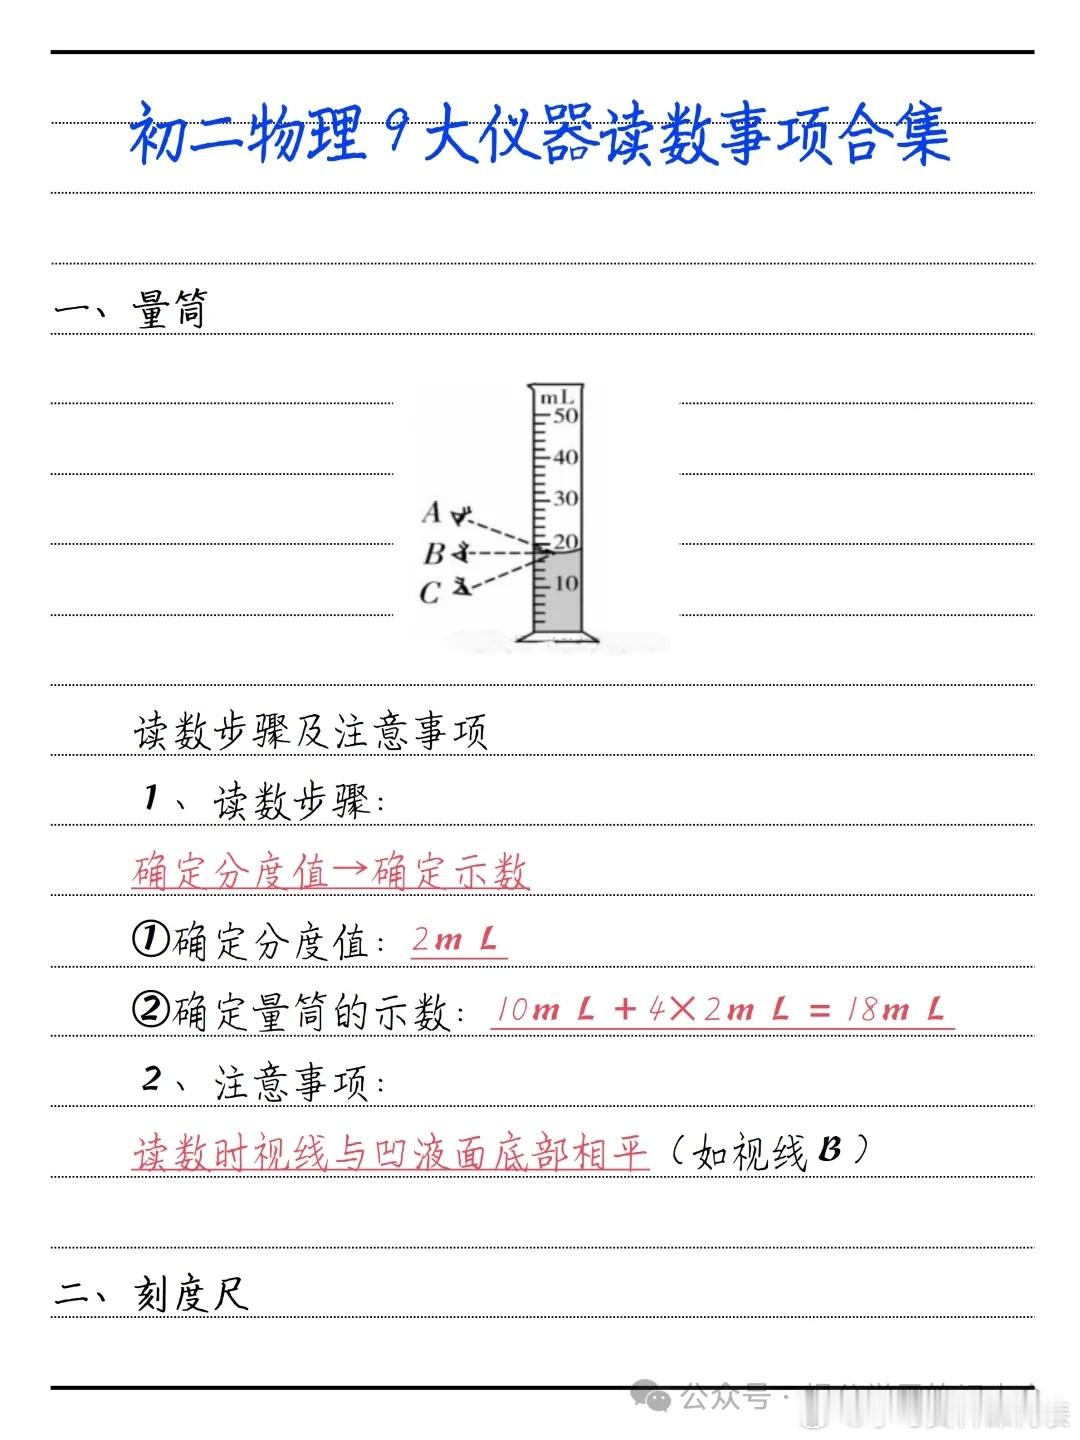 初二物理9大仪器读数事项合集
一、量筒
mL
50
40
30
20
10
A
B
C
读数步骤及注意事项
1、读数步骤：
确定分度值→确定示数
①确定分度值：2mL
②确定量筒的示数：10mL+4×2mL=18mL
2、注意事项：
读数时视线与凹液面底部相平（如视线B）
二、刻度尺
公众号·